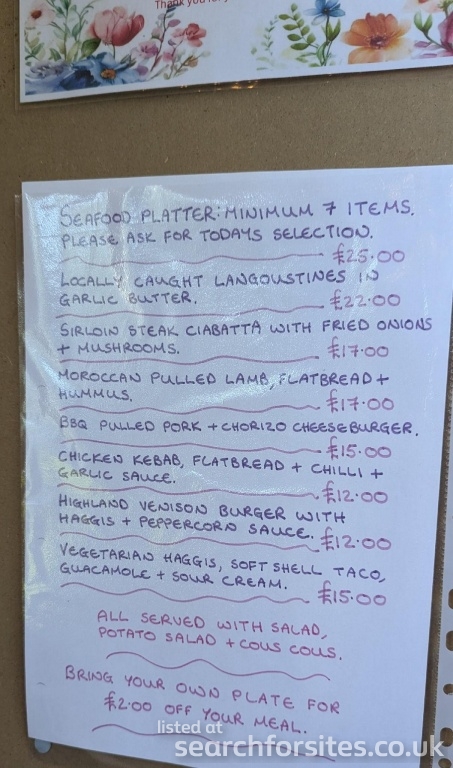 Thank you for
SEAFOOD PLATTER: MINIMUM 7 ITEMS.
PLEASE ASK FOR TODAYS SELECTION.
£25.00
LOCALLY CAUGHT LANGOUSTINES IN
GARLIC BUTTER.
£22.00
SIRLOIN STEAK CIABATTA WITH FRIED ONIONS
+ MUSHROOMS.
£17.00
MOROCCAN PULLED LAMB, FLATBREAD +
HUMMUS.
£17.00
BBQ PULLED PORK + CHORIZO CHEESEBURGER.
£15.00
CHICKEN KEBAB, FLATBREAD + CHILLI +
GARLIC SAUCE.
£12.00
HIGHLAND VENISON BURGER WITH
HAGGIS + PEPPERCORN SAUCE.
£12.00
VEGETARIAN HAGGIS, SOFT SHELL TACO,
GUACAMOLE + SOUR CREAM.
£15.00
ALL SERVED WITH SALAD,
POTATO SALAD + COUS COUS.
BRING YOUR OWN PLATE FOR
£2.00 OFF YOUR MEAL.
listed at
searchforsites.co.uk